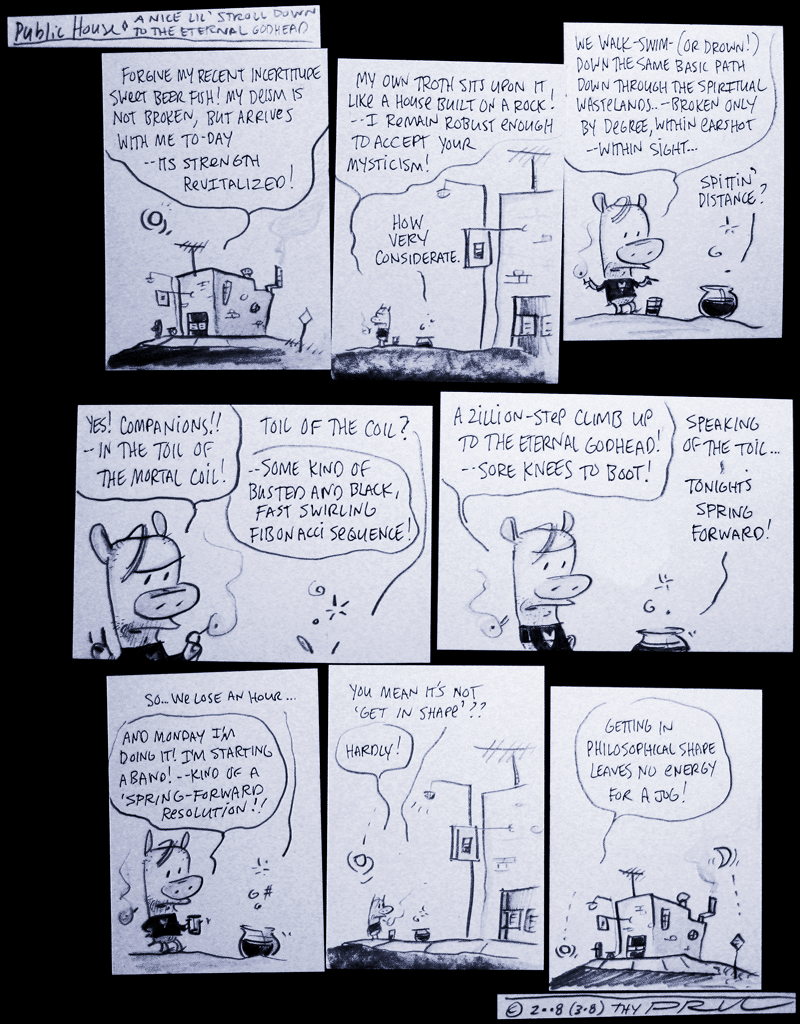 Public House: A NICE LIL' STROLL DOWN
TO THE ETERNAL GODHEAD
FORGIVE MY RECENT INCERTITUDE
SWEET BEER FISH! MY DEISM IS
NOT BROKEN, BUT ARRIVES
WITH ME TO-DAY
--ITS STRENGTH
REVITALIZED!
MY OWN TROTH SITS UPON IT
LIKE A HOUSE BUILT ON A ROCK!
--I REMAIN ROBUST ENOUGH
TO ACCEPT YOUR
MYSTICISM!
HOW
VERY
CONSIDERATE.
WE WALK-SWIM-(OR DROWN!)
DOWN THE SAME BASIC PATH
DOWN THROUGH THE SPIRITUAL
WASTELANDS..-BROKEN ONLY
BY DEGREE, WITHIN EARSHOT
--WITHIN SIGHT...
SPITTIN'
DISTANCE?
YES! COMPANIONS!!
--IN THE TOIL OF
THE MORTAL COIL!
TOIL OF THE COIL?
--SOME KIND OF
BUSTED AND BLACK,
FAST SWIRLING
FIBONACCI SEQUENCE!
A ZILLION-STEP CLIMB UP
TO THE ETERNAL GODHEAD!
--SORE KNEES TO BOOT!
SPEAKING
OF THE TOIL...
TONIGHT'S
SPRING
FORWARD!
SO... WE LOSE AN HOUR...
AND MONDAY I'M
DOING IT! I'M STARTING
A BAND! --KIND OF A
'SPRING-FORWARD
RESOLUTION'!!
G#
YOU MEAN IT'S NOT
'GET IN SHAPE'??
HARDLY!
GETTING IN
PHILOSOPHICAL SHAPE
LEAVES NO ENERGY
FOR A JOG!
© 2008 (3.8) THY